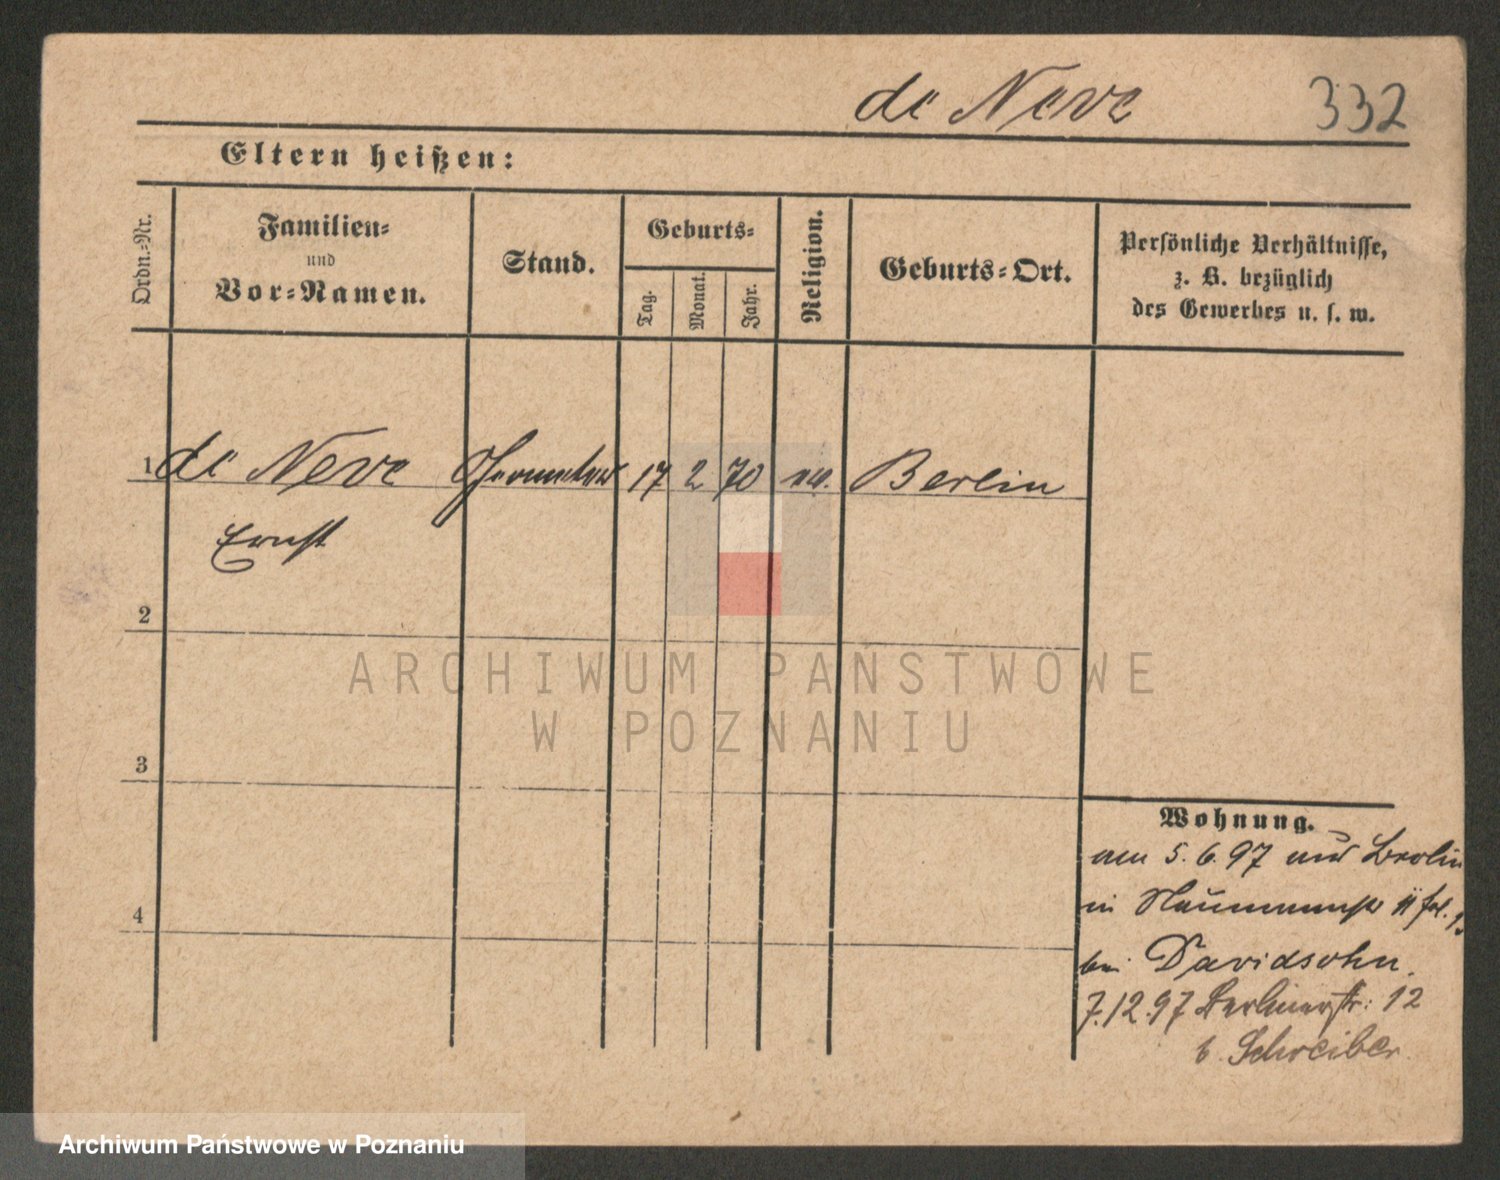 de Neve 332
Eltern heißen:
Ordn.=Nr.
Familien=
und
Vor=Namen.
Stand.
Geburts=
Tag.
Monat.
Jahr.
Religion.
Geburts=Ort.
Persönliche Verhältnisse,
z. B. bezüglich
des Gewerbes u. s. w.
1 de Neve Geometer 17 2 70 ev. Berlin
Ernst
2
3
4
ARCHIWUM PAŃSTWOWE
W POZNANIU
Wohnung.
am 5.6.97 aus Berlin
in Naumannstr
bei Davidsohn.
7.12.97 Berlinerstr: 12
b. Schreiber.
Archiwum Państwowe w Poznaniu